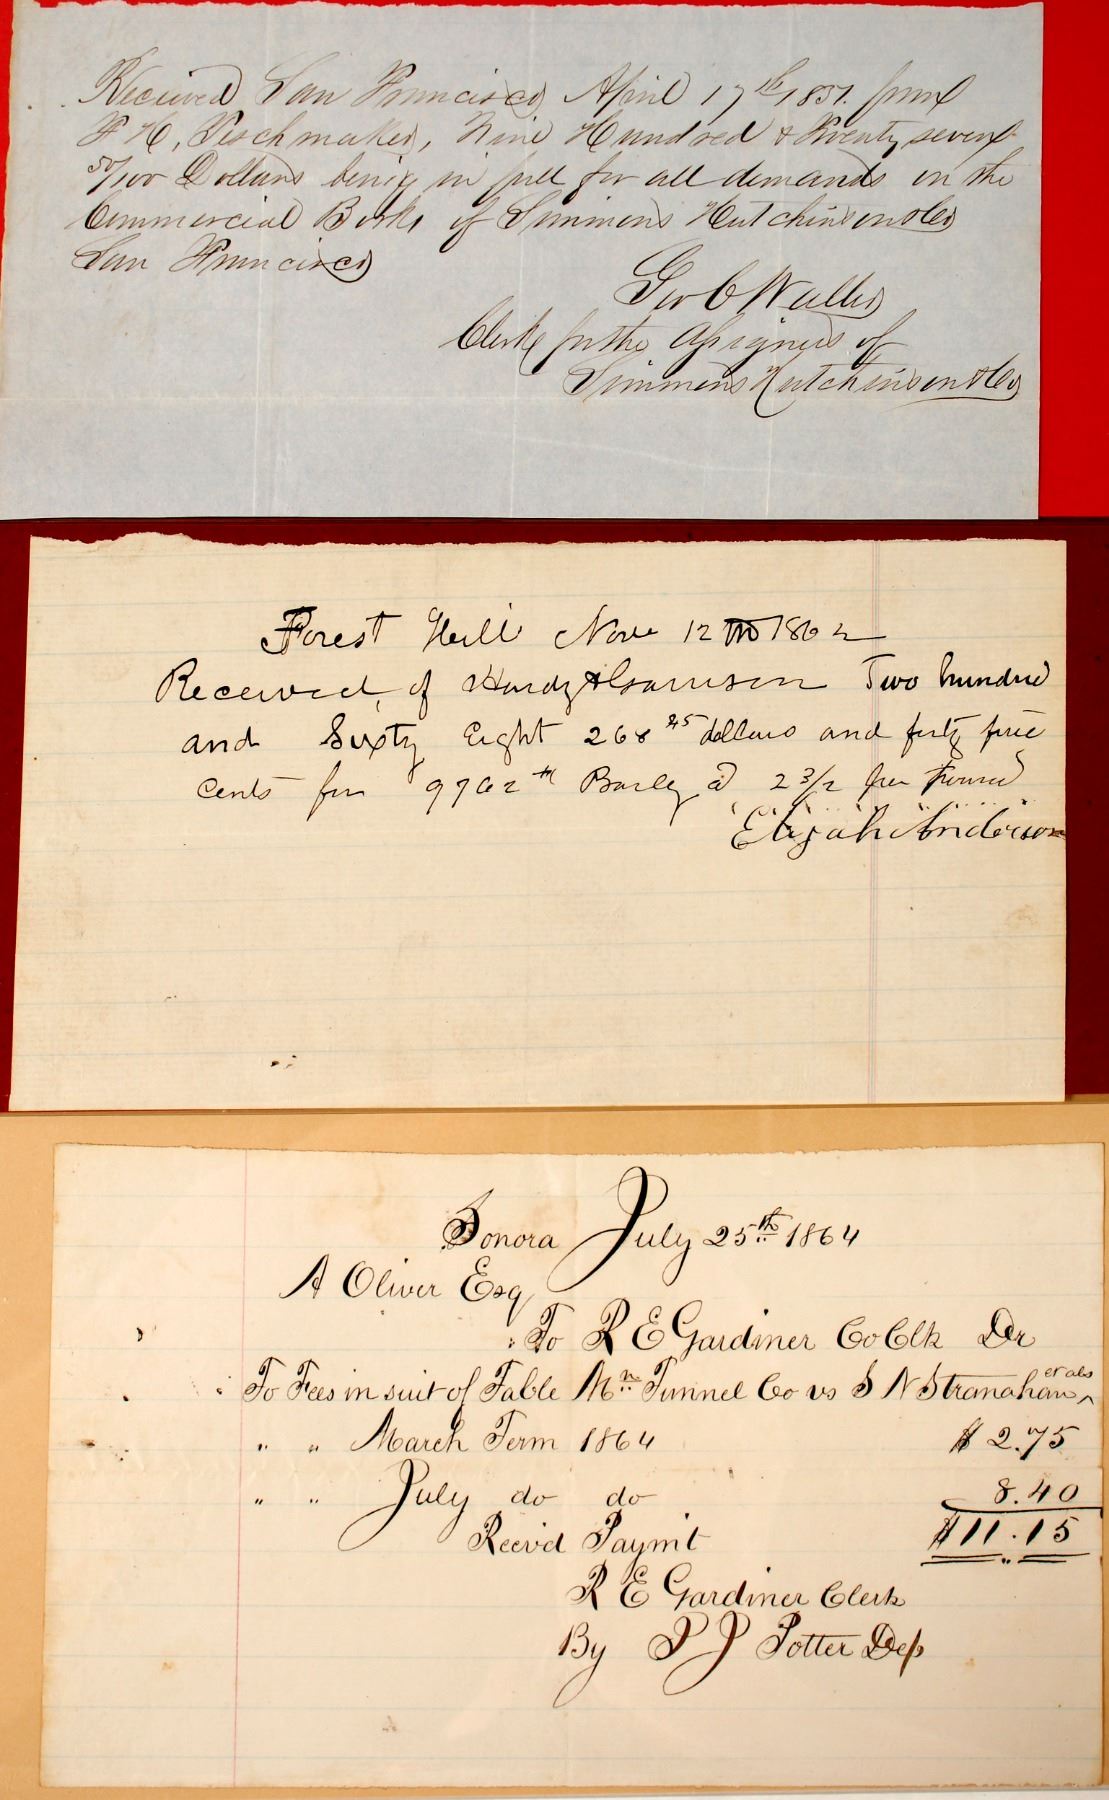 Received San Francisco April 17th 1851. from
F H, Teschmaker, Nine Hundred & Twenty seven
50/100 Dollars being in full for all demands on the
Commercial Books of Simmons Hutchinson & Co
San Francisco
Geo C Waller
Clerk for the Assignees of
Simmons Hutchinson & Co
Forest Hill Nov 12th 1862
Received, of Hardy & Garrison Two hundred
and Sixty Eight 268 45 dollars and forty five
cents for 9762 lb Barley @ 2 3/2 per Pound
Elijah Anderson
Sonora July 25th 1864
A Oliver Esq
To R E Gardiner Co Clk Dr
To Fees in suit of Table Mn Tunnel Co vs S N Stranahan et als
" " March Term 1864 $ 2.75
" " July do do 8.40
Rec'vd Paymt $11.15
R E Gardiner Clerk
By P J Potter Dep